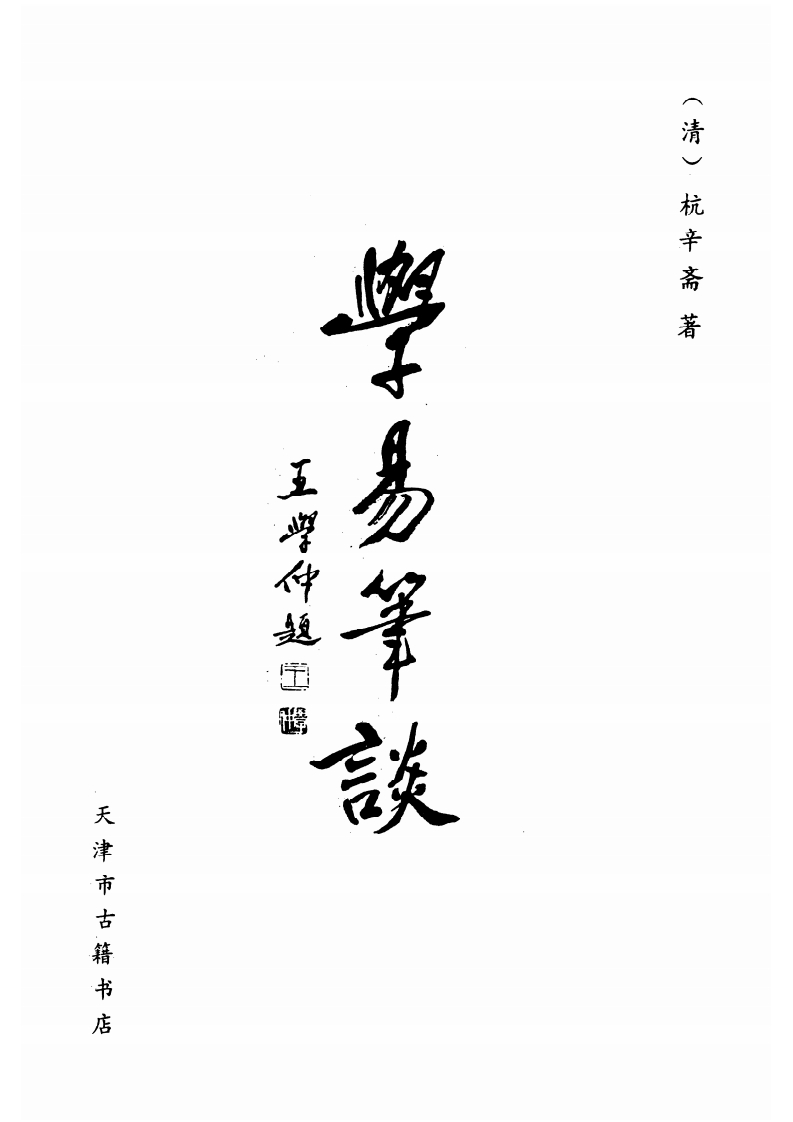 （清）杭辛斋 著
學易筆談
王學仲題
天津市古籍书店